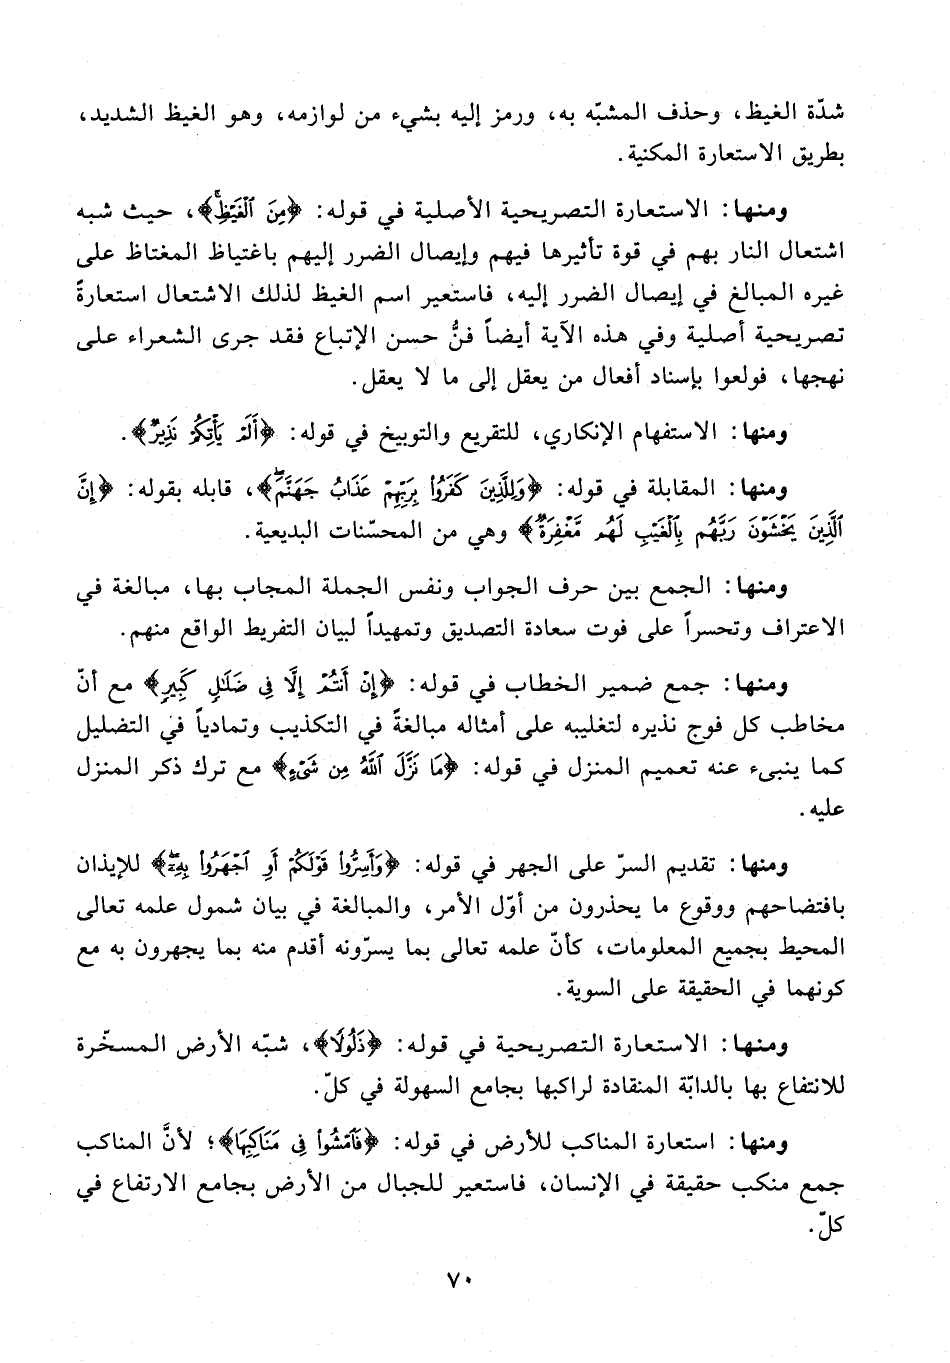 شدّة الغيظ، وحذف المشبّه به، ورمز إليه بشيء من لوازمه، وهو الغيظ الشديد،
بطريق الاستعارة المكنية.
ومنها: الاستعارة التصريحية الأصلية في قوله: ﴿مِنَ ٱلْغَيْظِۖ﴾، حيث شبه
اشتعال النار بهم في قوة تأثيرها فيهم وإيصال الضرر إليهم باغتياظ المغتاظ على
غيره المبالغ في إيصال الضرر إليه، فاستعير اسم الغيظ لذلك الاشتعال استعارةً
تصريحية أصلية وفي هذه الآية أيضاً فنُّ حسن الإتباع فقد جرى الشعراء على
نهجها، فولعوا بإسناد أفعال من يعقل إلى ما لا يعقل.
ومنها: الاستفهام الإنكاري، للتقريع والتوبيخ في قوله: ﴿أَلَمْ يَأْتِكُمْ نَذِيرٌ﴾.
ومنها: المقابلة في قوله: ﴿وَلِلَّذِينَ كَفَرُوا۟ بِرَبِّهِمْ عَذَابُ جَهَنَّمَۖ﴾، قابله بقوله: ﴿إِنَّ
ٱلَّذِينَ يَخْشَوْنَ رَبَّهُم بِٱلْغَيْبِ لَهُم مَّغْفِرَةٌ﴾ وهي من المحسّنات البديعية.
ومنها: الجمع بين حرف الجواب ونفس الجملة المجاب بها، مبالغة في
الاعتراف وتحسراً على فوت سعادة التصديق وتمهيداً لبيان التفريط الواقع منهم.
ومنها: جمع ضمير الخطاب في قوله: ﴿إِنْ أَنتُمْ إِلَّا فِى ضَلَٰلٍ كَبِيرٍ﴾ مع أنّ
مخاطب كل فوج نذيره لتغليبه على أمثاله مبالغةً في التكذيب وتمادياً في التضليل
كما ينبىء عنه تعميم المنزل في قوله: ﴿مَا نَزَّلَ ٱللَّهُ مِن شَىْءٍ﴾ مع ترك ذكر المنزل
عليه.
ومنها: تقديم السرّ على الجهر في قوله: ﴿وَأَسِرُّوا۟ قَوْلَكُمْ أَوِ ٱجْهَرُوا۟ بِهِۦٓۖ﴾ للإيذان
بافتضاحهم ووقوع ما يحذرون من أوّل الأمر، والمبالغة في بيان شمول علمه تعالى
المحيط بجميع المعلومات، كأنّ علمه تعالى بما يسرّونه أقدم منه بما يجهرون به مع
كونهما في الحقيقة على السوية.
ومنها: الاستعارة التصريحية في قوله: ﴿ذَلُولًا﴾، شبّه الأرض المسخّرة
للانتفاع بها بالدابّة المنقادة لراكبها بجامع السهولة في كلّ.
ومنها: استعارة المناكب للأرض في قوله: ﴿فَٱمْشُوا۟ فِى مَنَاكِبِهَا﴾؛ لأنَّ المناكب
جمع منكب حقيقة في الإنسان، فاستعير للجبال من الأرض بجامع الارتفاع في
كلّ.
٧٠